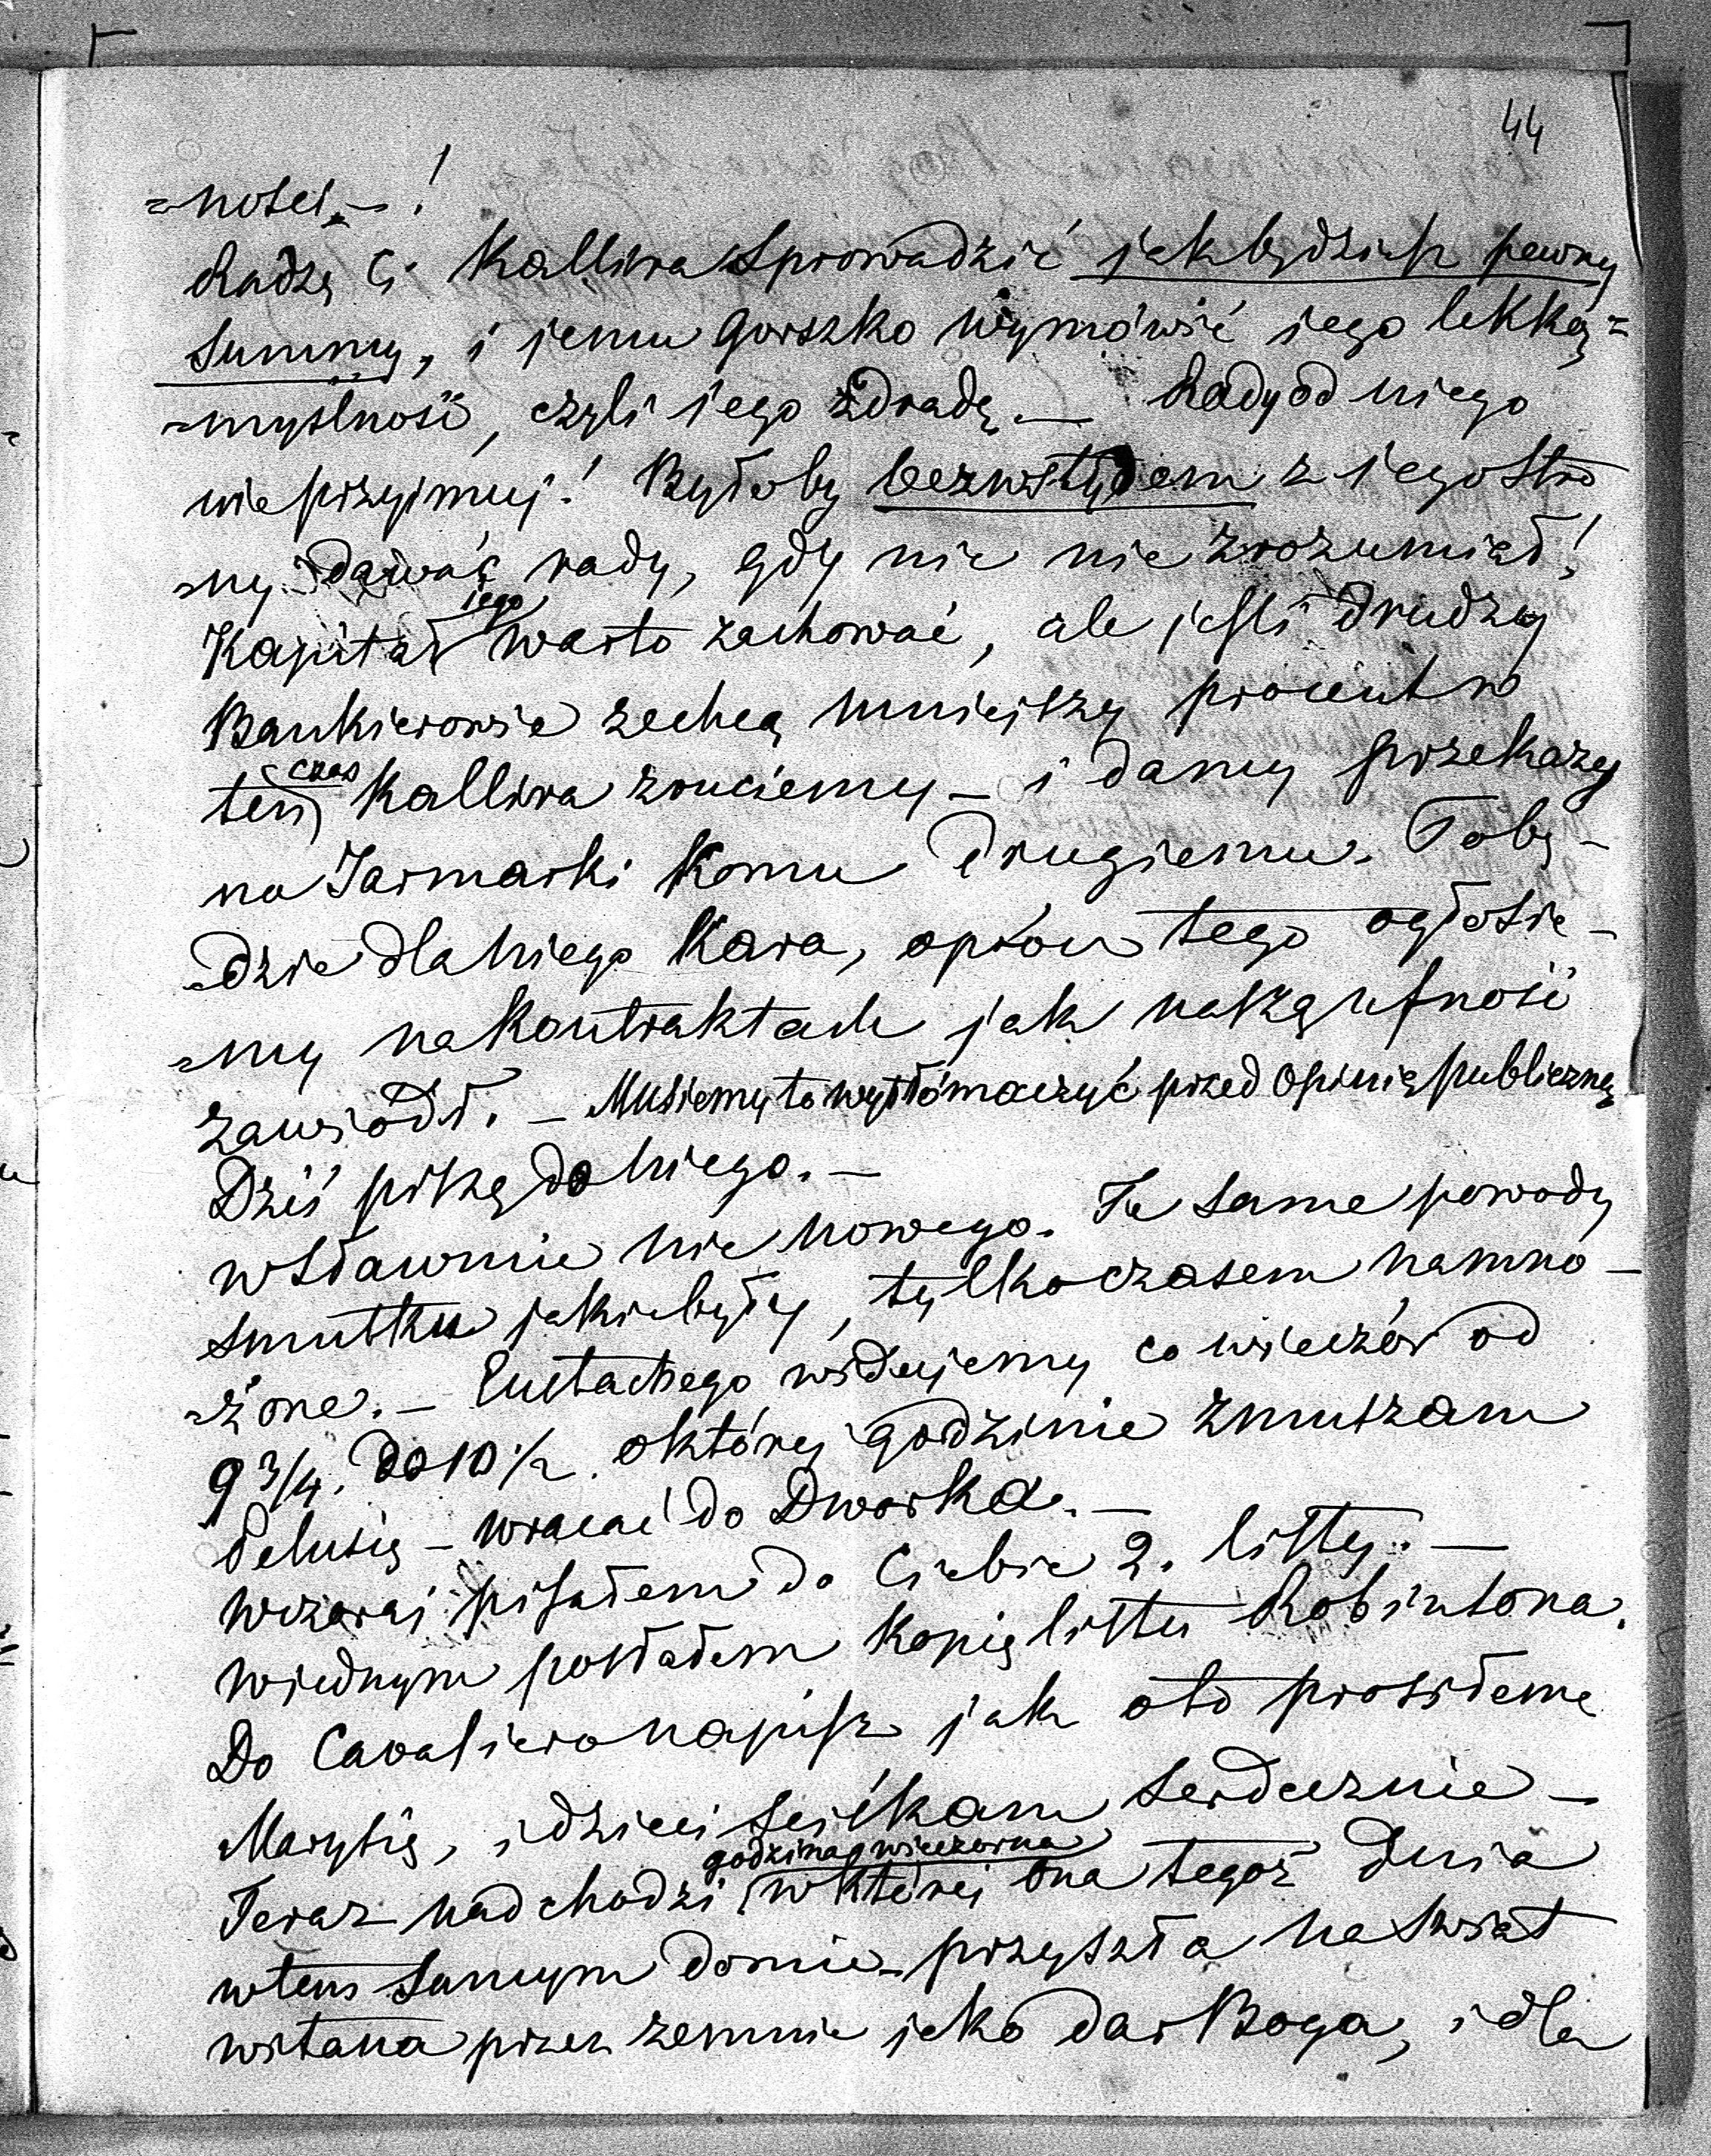 44
=ności. – !
Radzę Ci Kallira sprowadzić jak będziesz pewny
summy, i jemu gorszko wymówić jego lekką=
=myślność, czyli iego zdradę. — Rady od niego
nie przyimuj! Byłoby bezwstydem z iego stro
=ny dawać rady, gdy nic nie zrozumiał!
Kapitał iego warto zachować, ale jeśli drudzy
Bankierowie zechcą mniejszy procent w
ten czas Kallira zruciemy – i damy przekazy
na Jarmarki komu drugiemu. To bę–
=dzie dla niego kara, oprócz tego ogłosie–
=my na kontraktach jak naszą ufność
zawiódł. – Musiemy to wytłómaczyć przed Opinią publiczną
Dziś piszę do niego. —
w Sławucie nic nowego. Te same powody
smutku jakie były, tylko czasem namno–
=żone. – Eustachego widujemy co wieczór od
9 3/4. do 10 1/2. o której godzinie zmuszam
Helusię – wracać do Dworka. —
wczoraj pisałem do Ciebie 2. listy. —
w jednym posłałem kopię listu Robinsona.
Do Cavaliero napisz jak oto prosiłem
Marysię, i dzieci ściskam serdecznie –
Teraz nadchodzi godzina wieczorna w której ona tegoż dnia
w tem samym domie – przyszła na świat
witana przez zemnie jako dar Boga, i dla